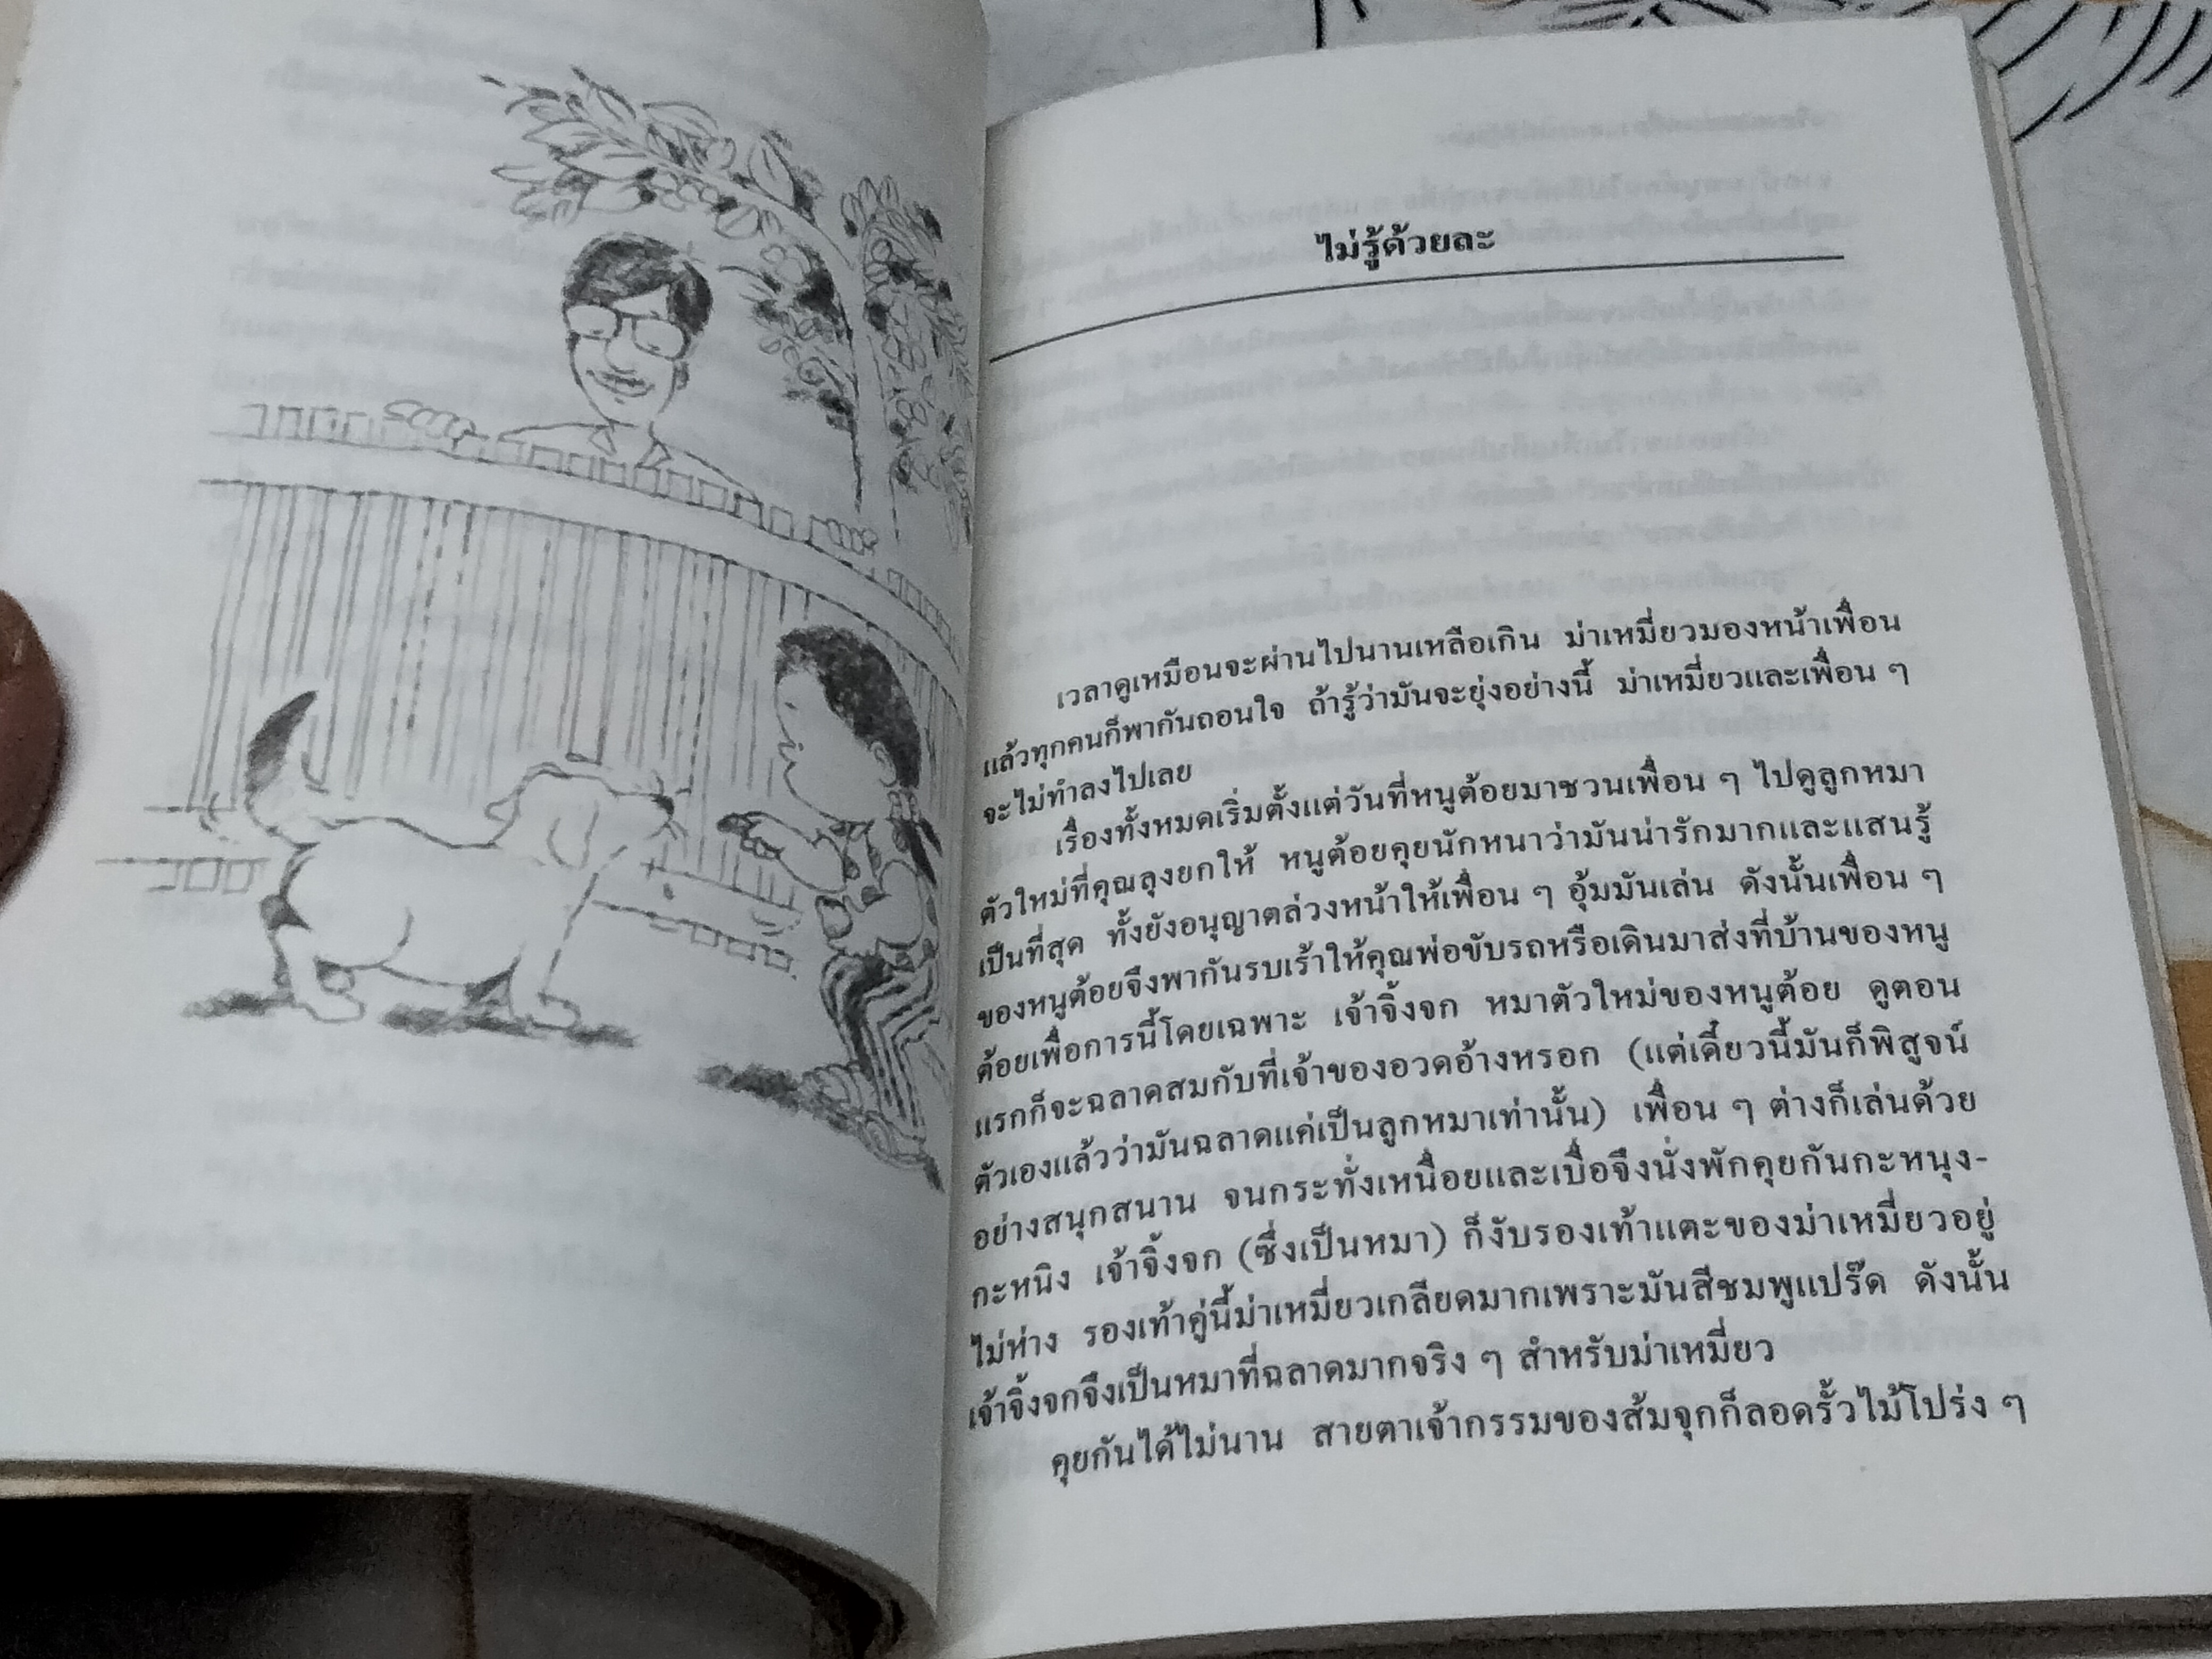 ไม่รู้ด้วยละ
เวลาดูเหมือนจะผ่านไปนานเหลือเกิน ม่าเหมี่ยวมองหน้าเพื่อน
แล้วทุกคนก็พากันถอนใจ ถ้ารู้ว่ามันจะยุ่งอย่างนี้ ม่าเหมี่ยวและเพื่อน ๆ
จะไม่ทำลงไปเลย
เรื่องทั้งหมดเริ่มตั้งแต่วันที่หนูต้อยมาชวนเพื่อน ๆ ไปดูลูกหมา
ตัวใหม่ที่คุณลุงยกให้ หนูต้อยคุยนักหนาว่ามันน่ารักมากและแสนรู้
เป็นที่สุด ทั้งยังอนุญาตล่วงหน้าให้เพื่อน ๆ อุ้มมันเล่น ดังนั้นเพื่อน ๆ
ของหนูต้อยจึงพากันรบเร้าให้คุณพ่อขับรถหรือเดินมาส่งที่บ้านของหนู
ต้อยเพื่อการนี้โดยเฉพาะ เจ้าจิ้งจก หมาตัวใหม่ของหนูต้อย ดูตอน
แรกก็จะฉลาดสมกับที่เจ้าของอวดอ้างหรอก (แต่เดี๋ยวนี้มันก็พิสูจน์
ตัวเองแล้วว่ามันฉลาดแค่เป็นลูกหมาเท่านั้น) เพื่อน ๆ ต่างก็เล่นด้วย
อย่างสนุกสนาน จนกระทั่งเหนื่อยและเบื่อจึงนั่งพักคุยกันกะหนุง-
กะหนิง เจ้าจิ้งจก (ซึ่งเป็นหมา) ก็งับรองเท้าแตะของม่าเหมี่ยวอยู่
ไม่ห่าง รองเท้าคู่นี้ม่าเหมี่ยวเกลียดมากเพราะมันสีชมพูแปร๊ด ดังนั้น
เจ้าจิ้งจกจึงเป็นหมาที่ฉลาดมากจริง ๆ สำหรับม่าเหมี่ยว
คุยกันได้ไม่นาน สายตาเจ้ากรรมของส้มจุกก็ลอดรั้วไม้โปร่ง ๆ